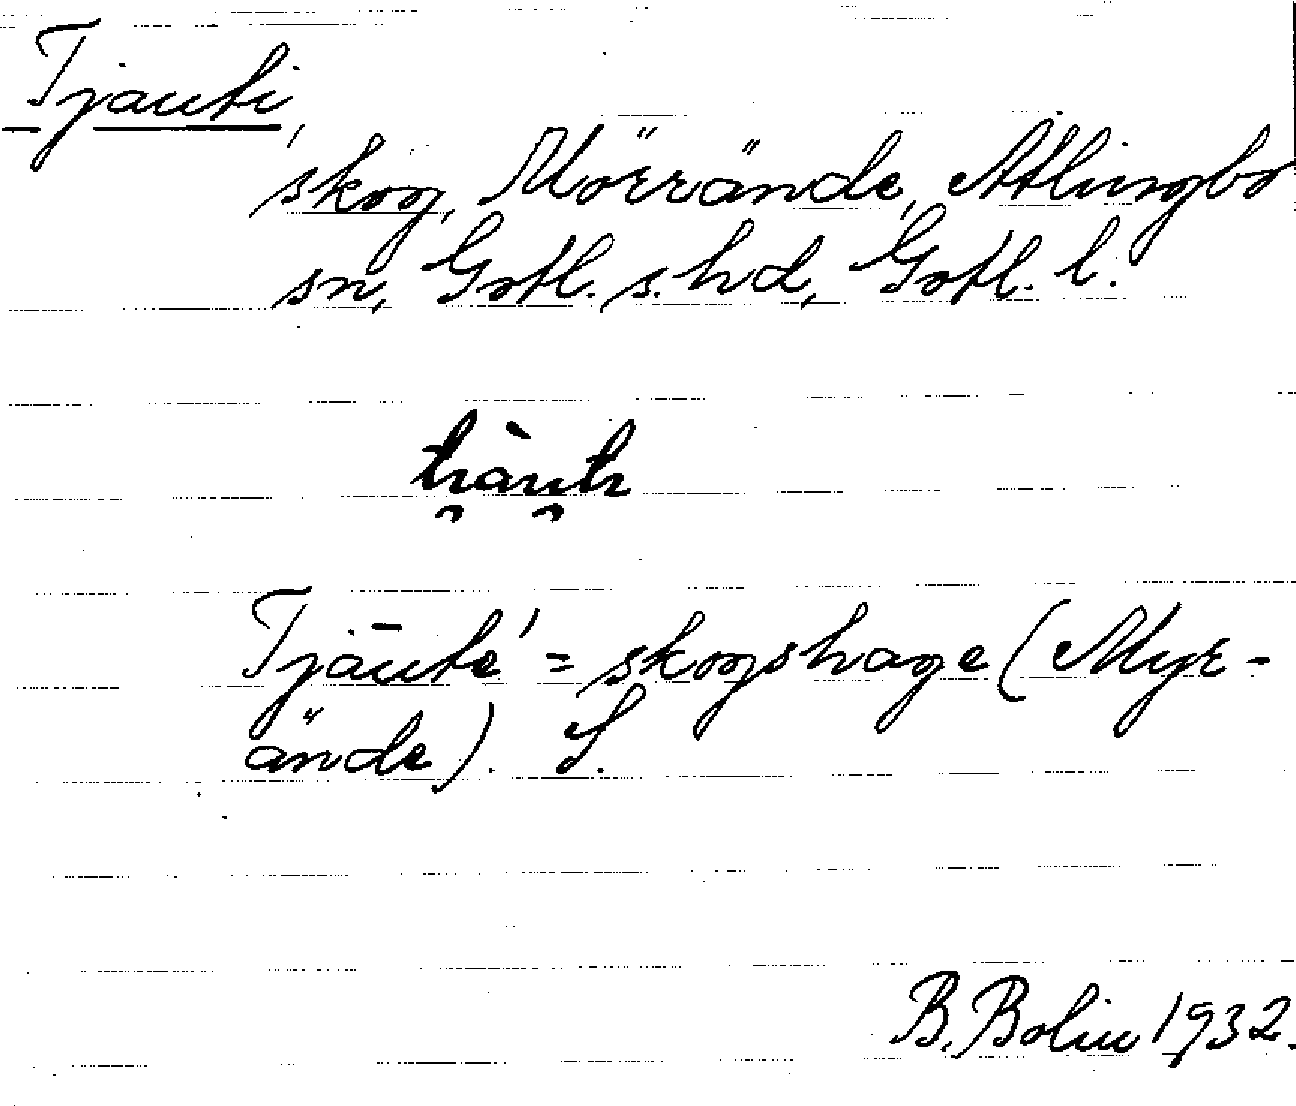 Tjauti,
skog, Mörrände, Atlingbo
sn, Gotl. s. hd, Gotl. l.
Tjāuté = skogshage (Myr-
ände). S.
B. Bolin 1932.